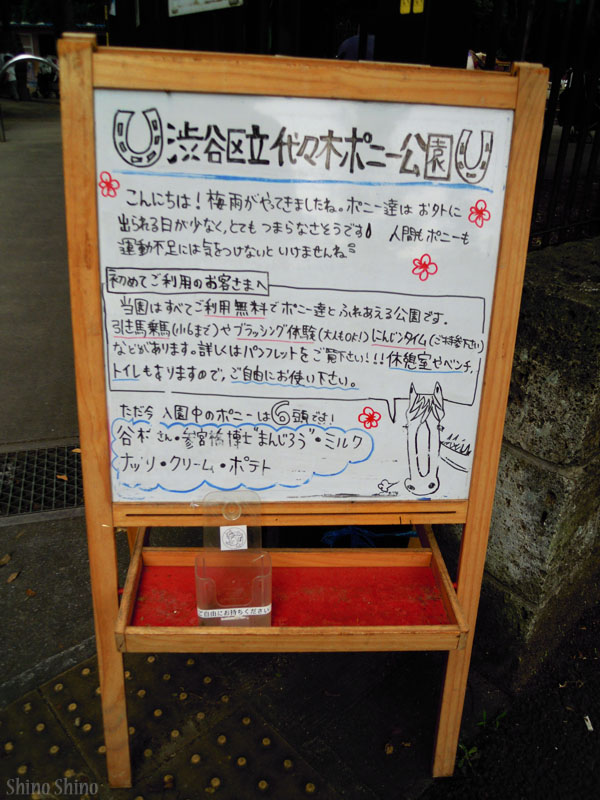 渋谷区立代々木ポニー公園
こんにちは！梅雨がやってきましたね。ポニー達はお外に
出られる日が少なく、とてもつまらなさそうです 人間もポニーも
運動不足には気をつけないといけませんね
初めてご利用のお客さまへ
当園はすべてご利用無料でポニー達とふれあえる公園です。
引き馬乗馬(小6まで)やブラッシング体験(大人もOK!)にんじんタイム(ご持参下さい)
などがあります。詳しくはパンフレットをご覧下さい!!!休憩室やベンチ,
トイレもありますので、ご自由にお使い下さい。
ただ今 入園中のポニーは⑥頭です!
谷村さん・参宮橋博士"まんじろう"・ミルク
ナッツ・クリーム・ポテト
ご自由にお持ちください
Shino Shino